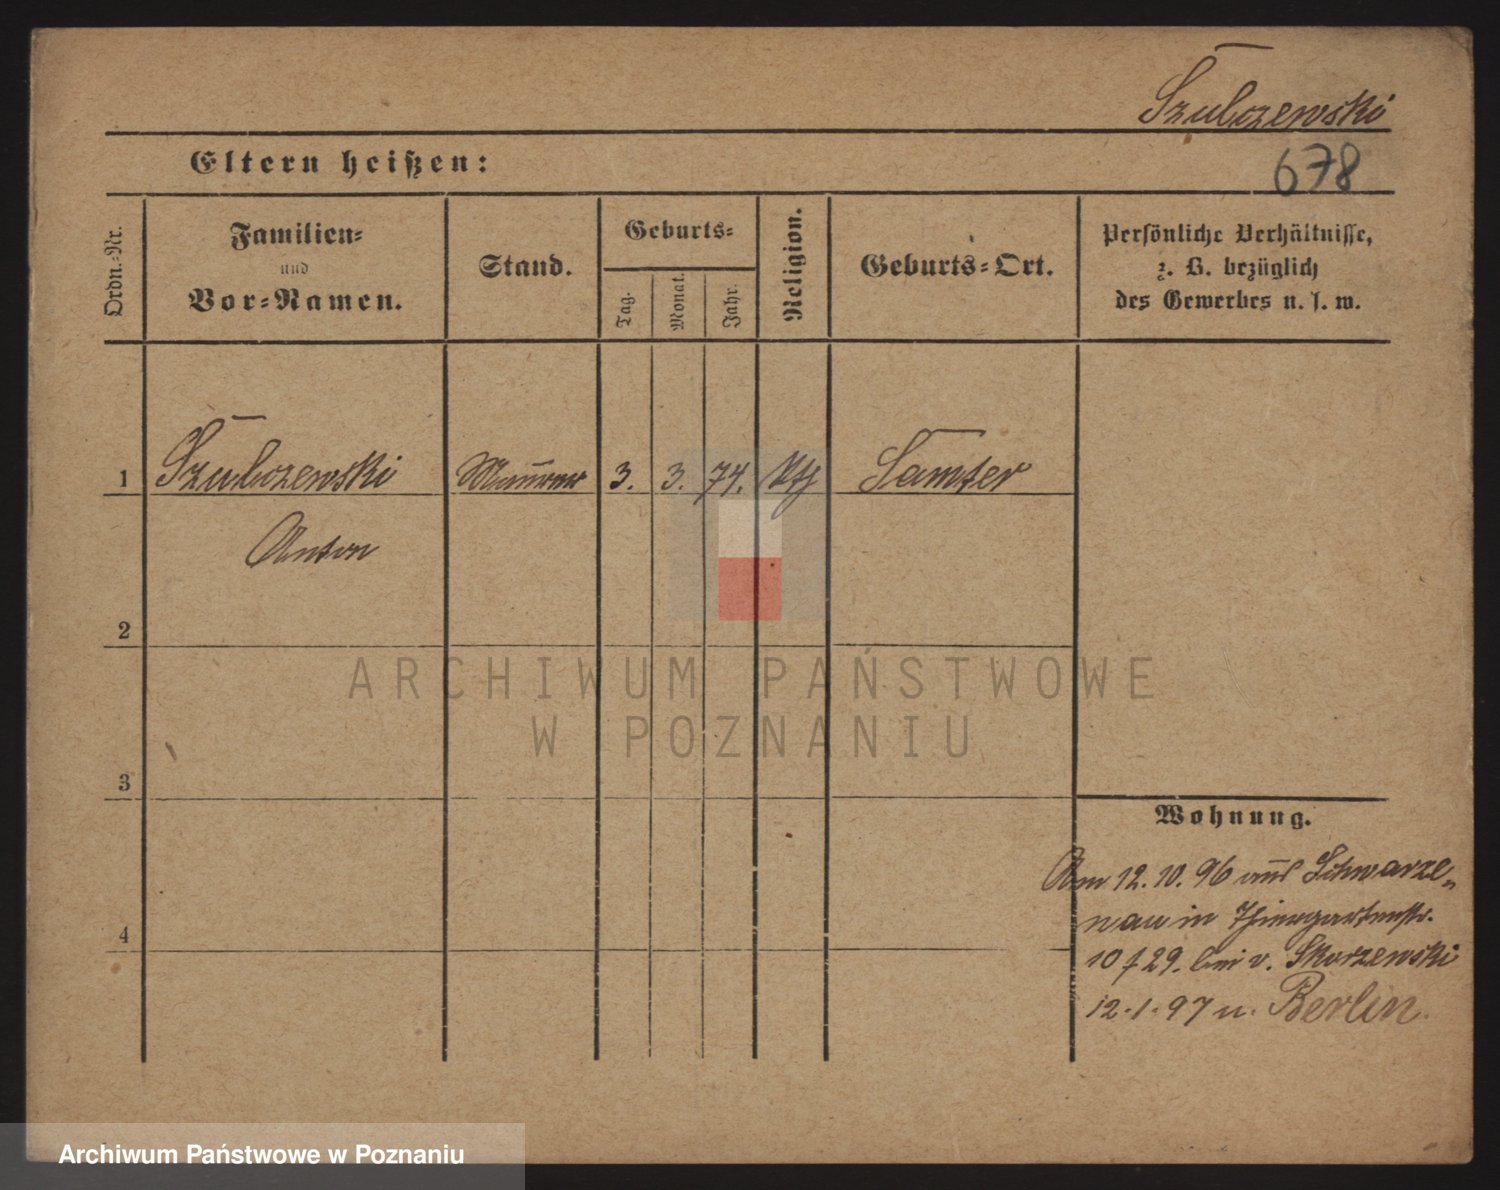 Szubczewski
Eltern heißen:
678
Ordn.-Nr.
Familien-
und
Vor-Namen.
Stand.
Geburts-
Tag.
Monat.
Jahr.
Religion.
Geburts-Ort.
Persönliche Verhältnisse,
z. B. bezüglich
des Gewerbes u. s. w.
1 Szubczewski Maurer 3. 3. 74. kth Samter
Anton
2
3
4
Wohnung.
Am 12. 10. 96 aus Schwarze-
nau in Thiergartenstr.
10 f 29. bei v. Skorzewski
12.1.97 n. Berlin.
ARCHIWUM PAŃSTWOWE
W POZNANIU
Archiwum Państwowe w Poznaniu